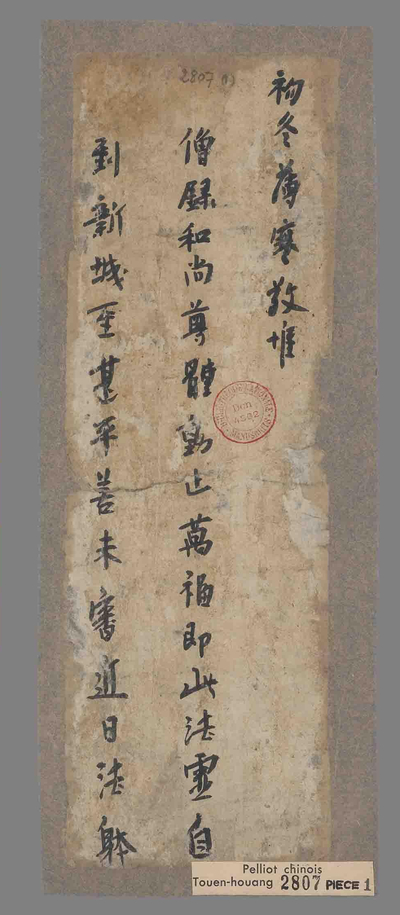 2807 (1)
初冬薄寒敬惟
僧録和尚尊體動止萬福即此法靈自
到新城至甚平善未審近日法躰
Don
4502
Pelliot chinois
Touen-houang 2807 PIECE 1